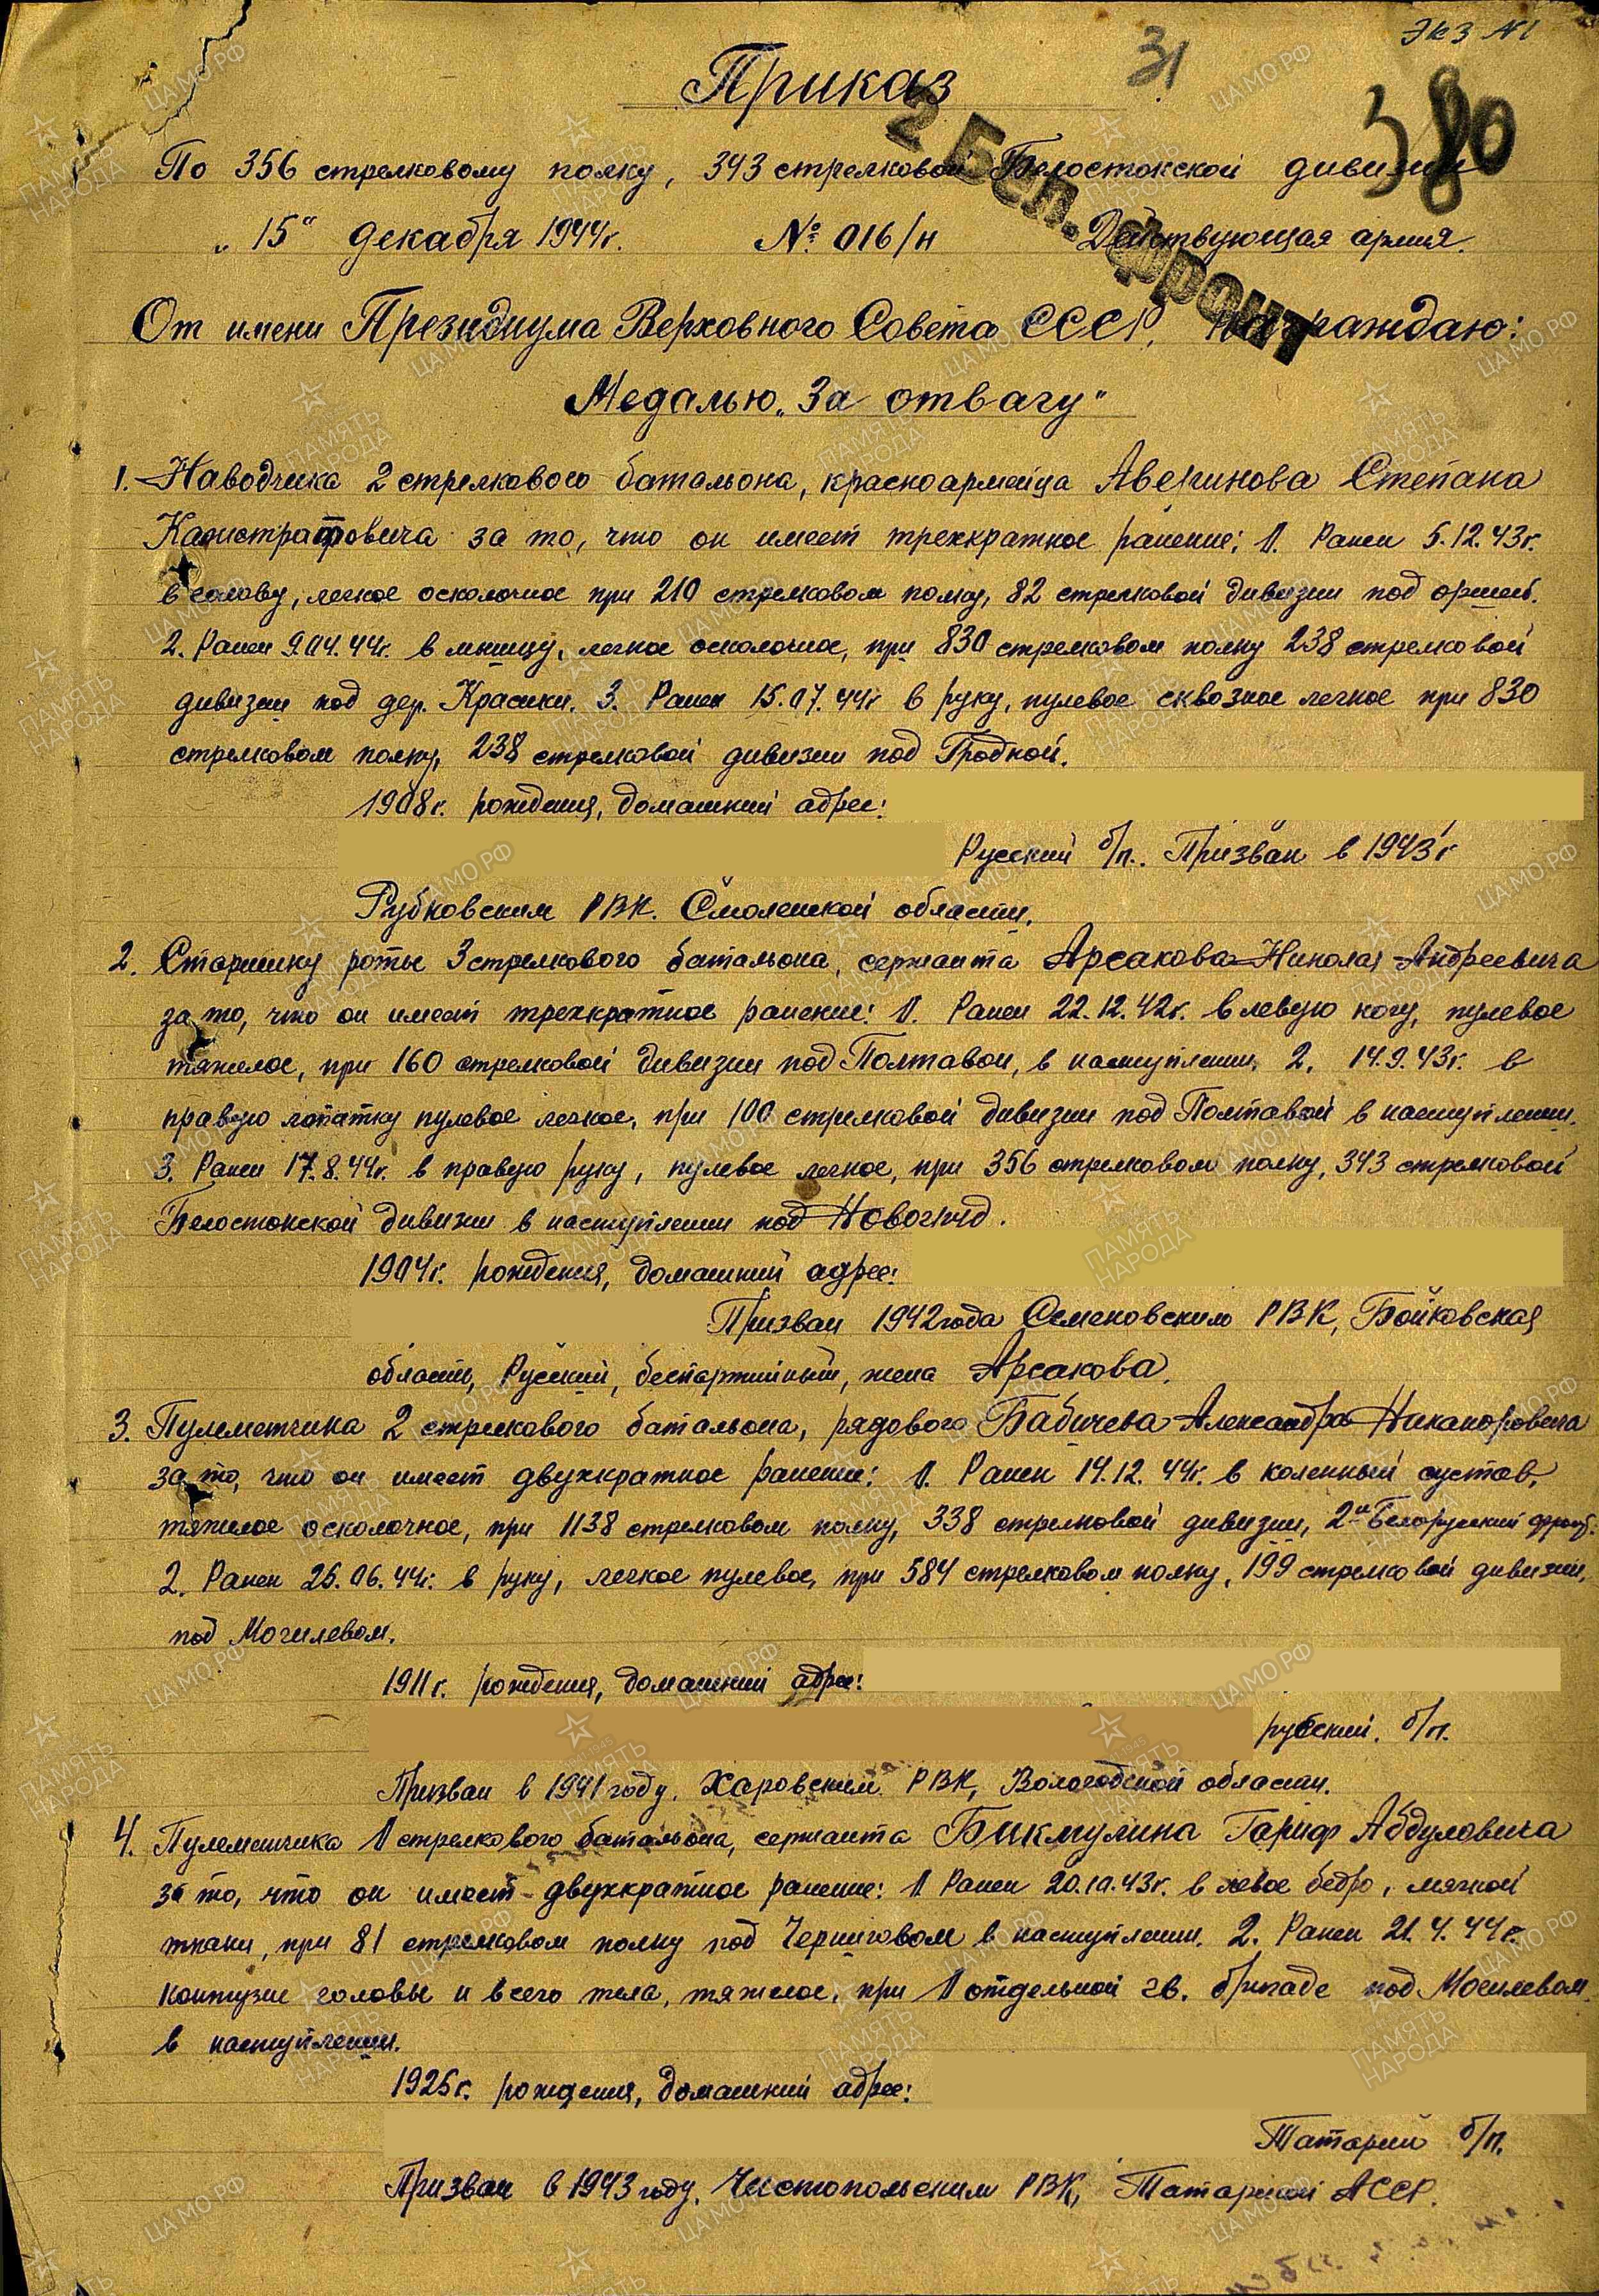 Экз №1
31
380
Приказ
2 Бел. фронт
По 356 стрелковому полку, 343 стрелковой Белостокской дивизии
„15“ декабря 1944г. № 016/н Действующая армия.
От имени Президиума Верховного Совета СССР, награждаю:
Медалью „За отвагу“
1. Наводчика 2 стрелкового батальона, красноармейца Аверинова Степана
Калистратовича за то, что он имеет трехкратное ранение: 1. Ранен 5.12.43г.
в голову, легкое осколочное при 210 стрелковом полку, 82 стрелковой дивизии под
2. Ранен 9.04.44г. в мышцу, легкое осколочное, при 830 стрелковом полку 238 стрелковой
дивизии под дер. Красики. 3. Ранен 15.07.44г в руку, пулевое сквозное легкое при 830
стрелковом полку, 238 стрелковой дивизии под Гродной.
1908г. рождения, домашний адрес:
Русский б/п. Призван в 1943г
РВК. Смоленской области.
2. Старшину роты 3 стрелкового батальона, сержанта Арсакова Николая Андреевича
за то, что он имеет трехкратное ранение: 1. Ранен 22.12.42г. в левую ногу, пулевое
тяжелое, при 160 стрелковой дивизии под Полтавой, в наступлении. 2. 14.9.43г. в
правую лопатку пулевое легкое, при 100 стрелковой дивизии под Полтавой в наступлении.
3. Ранен 17.8.44г. в правую руку, пулевое легкое, при 356 стрелковом полку, 343 стрелковой
Белостокской дивизии в наступлении под Новогруд.
1904г. рождения, домашний адрес:
Призван 1942 года Семеновским РВК, Бойковская
область, Русский, беспартийный, жена Арсакова.
3. Пулеметчика 2 стрелкового батальона, рядового Бабичева Александра Никаноровича
за то, что он имеет двухкратное ранение: 1. Ранен 14.12.44г. в коленный сустав,
тяжелое осколочное, при 1138 стрелковом полку, 338 стрелковой дивизии, 2й Белорусский фронт.
2. Ранен 26.06.44г. в руку, легкое пулевое, при 584 стрелковом полку, 199 стрелковой дивизии,
под Могилевом.
1911г. рождения, домашний адрес:
русский. б/п.
Призван в 1941 году. Харовским РВК, Вологодской области.
4. Пулеметчика 1 стрелкового батальона, сержанта Бикмулина Гариф Абдуловича
за то, что он имеет двухкратное ранение: 1. Ранен 20.10.43г. в левое бедро, мягкой
ткани, при 81 стрелковом полку под Черниговом в наступлении. 2. Ранен 21.4.44г.
контузие головы и всего тела, тяжелое, при 1 отдельной гв. бригаде под Могилевом
в наступлении.
1925г. рождения, домашний адрес:
Татарин б/п.
Призван в 1943 году. Чистопольским РВК, Татарской АССР.